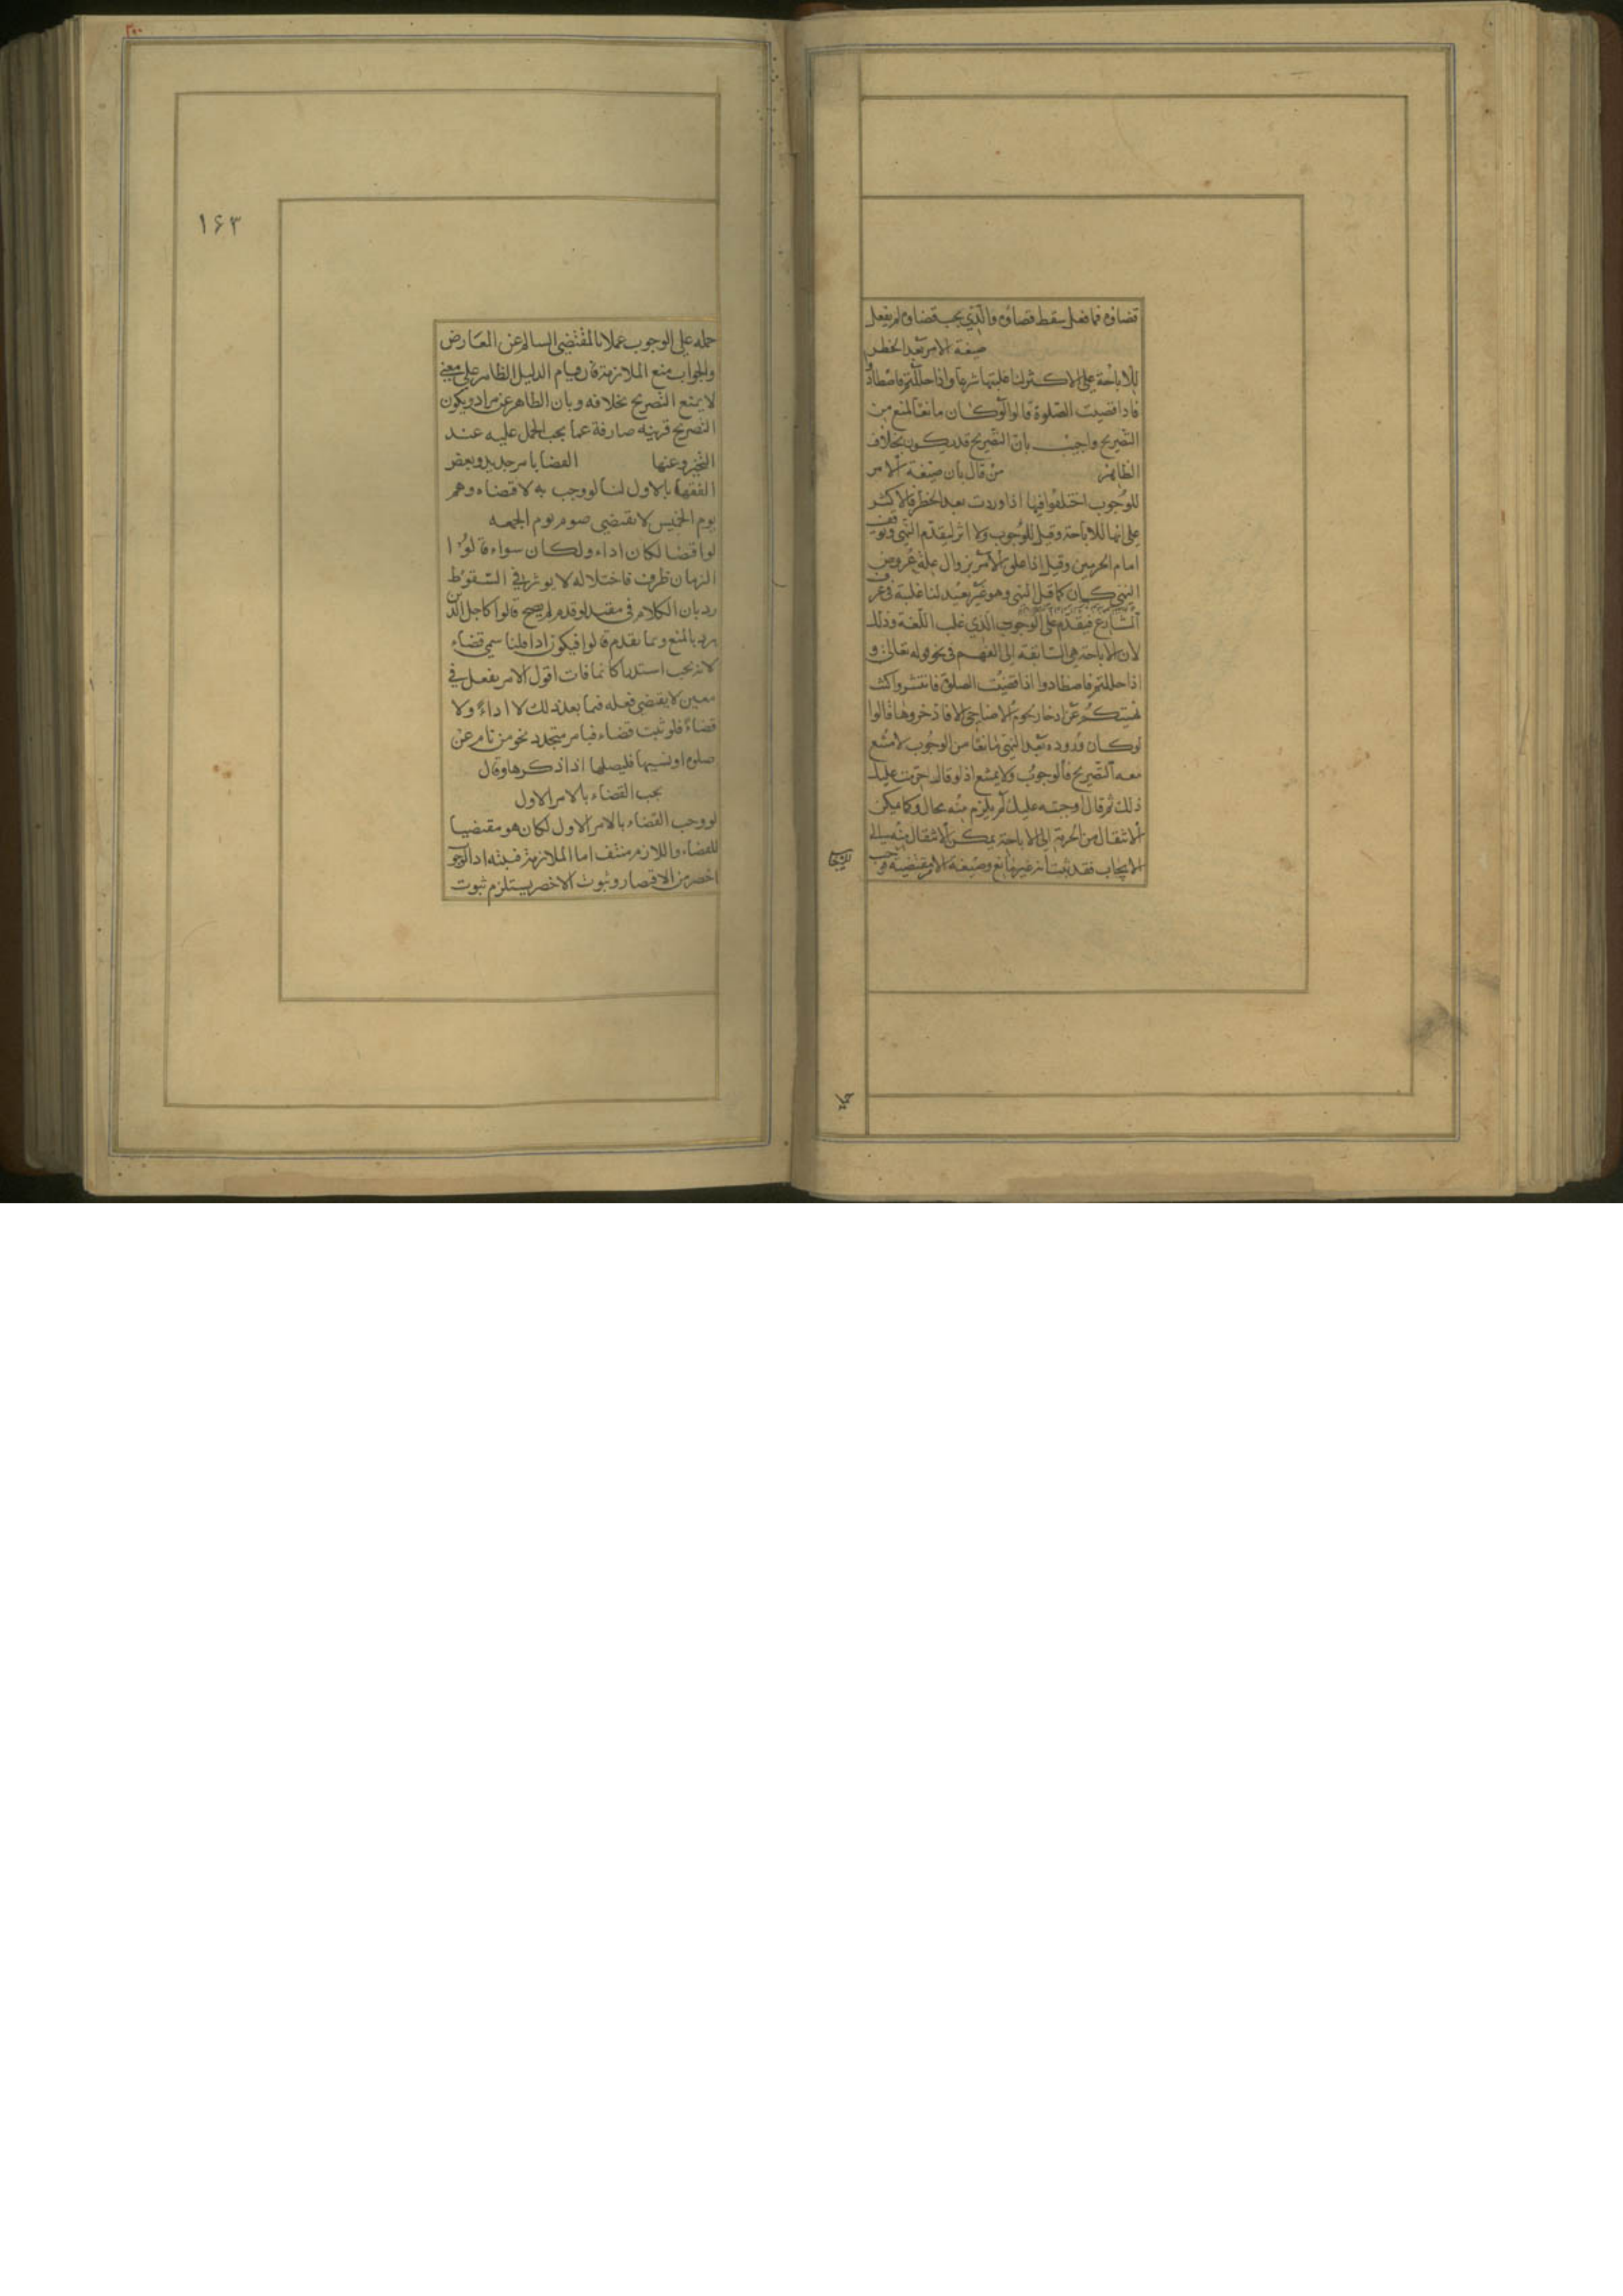 قضاؤه فما فعل سقط قضاؤه والذي يجب قضاؤه لم يفعل
صيغة الامر بعد الخطر
للاباحة على الاكثر لنا غلبتها شرعا واذا حللتم فاصطادوا
فاذا قضيت الصلوة قالوا لو كان مانعا لمنع من
التصريح واجيب بان التصريح قد يكون بخلاف
الظاهر من قال بان صيغة الامر
للوجوب اختلفوا فيها اذا وردت بعد الخطر فالاكثر
على انها للاباحة وقيل للوجوب ولا اثر لتقدم النهي وتوقف
امام الحرمين وقيل اذا علق الامر بزوال علة عروض
النهي كان كما قبل النهي وهو غير بعيد لنا غلبة في عرف
الشارع فيقدم على الوجوب الذي غلب اللغة وذلك
لان الاباحة هي السابقة الى الفهم في نحو قوله تعالى و
اذا حللتم فاصطادوا اذا قضيت الصلوة فانتشروا كنت
نهيتكم عن ادخار لحوم الاضاحي الا فادخروها قالوا
لو كان وروده بعد النهي مانعا من الوجوب لامتنع
معه التصريح فالوجوب ولا يمتنع اذ لو قال حرمت عليك
ذلك ثم قال اوجبته عليك لم يلزم منه محال وكما يمكن
الانتقال من الحرمة الى الاباحة يمكن الانتقال منه الى
الايجاب فقد ثبت انه غير مانع وصيغة الامر مقتضية فوجب
حمله
١۶٣
حمله على الوجوب عملا بالمقتضي السالم عن المعارض
والجواب منع الملازمة فان قيام الدليل الظاهر على معنى
لا يمنع التصريح بخلافه وبان الظاهر غير مراد ويكون
التصريح قرينه صارفة عما يجب الحمل عليه عند
التجرد عنها القضا بامر جديد وبعض
الفقهاء بالاول لنا لو وجب به لاقتضاه وهم
يوم الخميس لا يقتضي صوم يوم الجمعه
لو اقتضا لكان اداء ولكان سواء قالوا
الزمان ظرف فاختلاله لا يوثر في السقوط
رد بان الكلام في مقيد لو قدم لم يصح قالوا كاجل الدين
رد بالمنع وبما تقدم قالوا فيكون ادا قلنا سمي قضاء
لانه يجب استدراكا لما فات اقول الامر بفعل في
معين لا يقتضي فعله فيما بعد ذلك لا اداءً ولا
قضاءً فلو ثبت قضاء فبامر متجدد نحو من نام عن
صلوة او نسيها فليصلها اذا ذكرها وقال
يجب القضاء بالامر الاول
لو وجب القضاء بالامر الاول لكان هو مقتضيا
للقضاء واللازم منتف اما الملازمة فبينه اذ الوجوب
اخص من الاقتضاء وثبوت الاخص يستلزم ثبوت